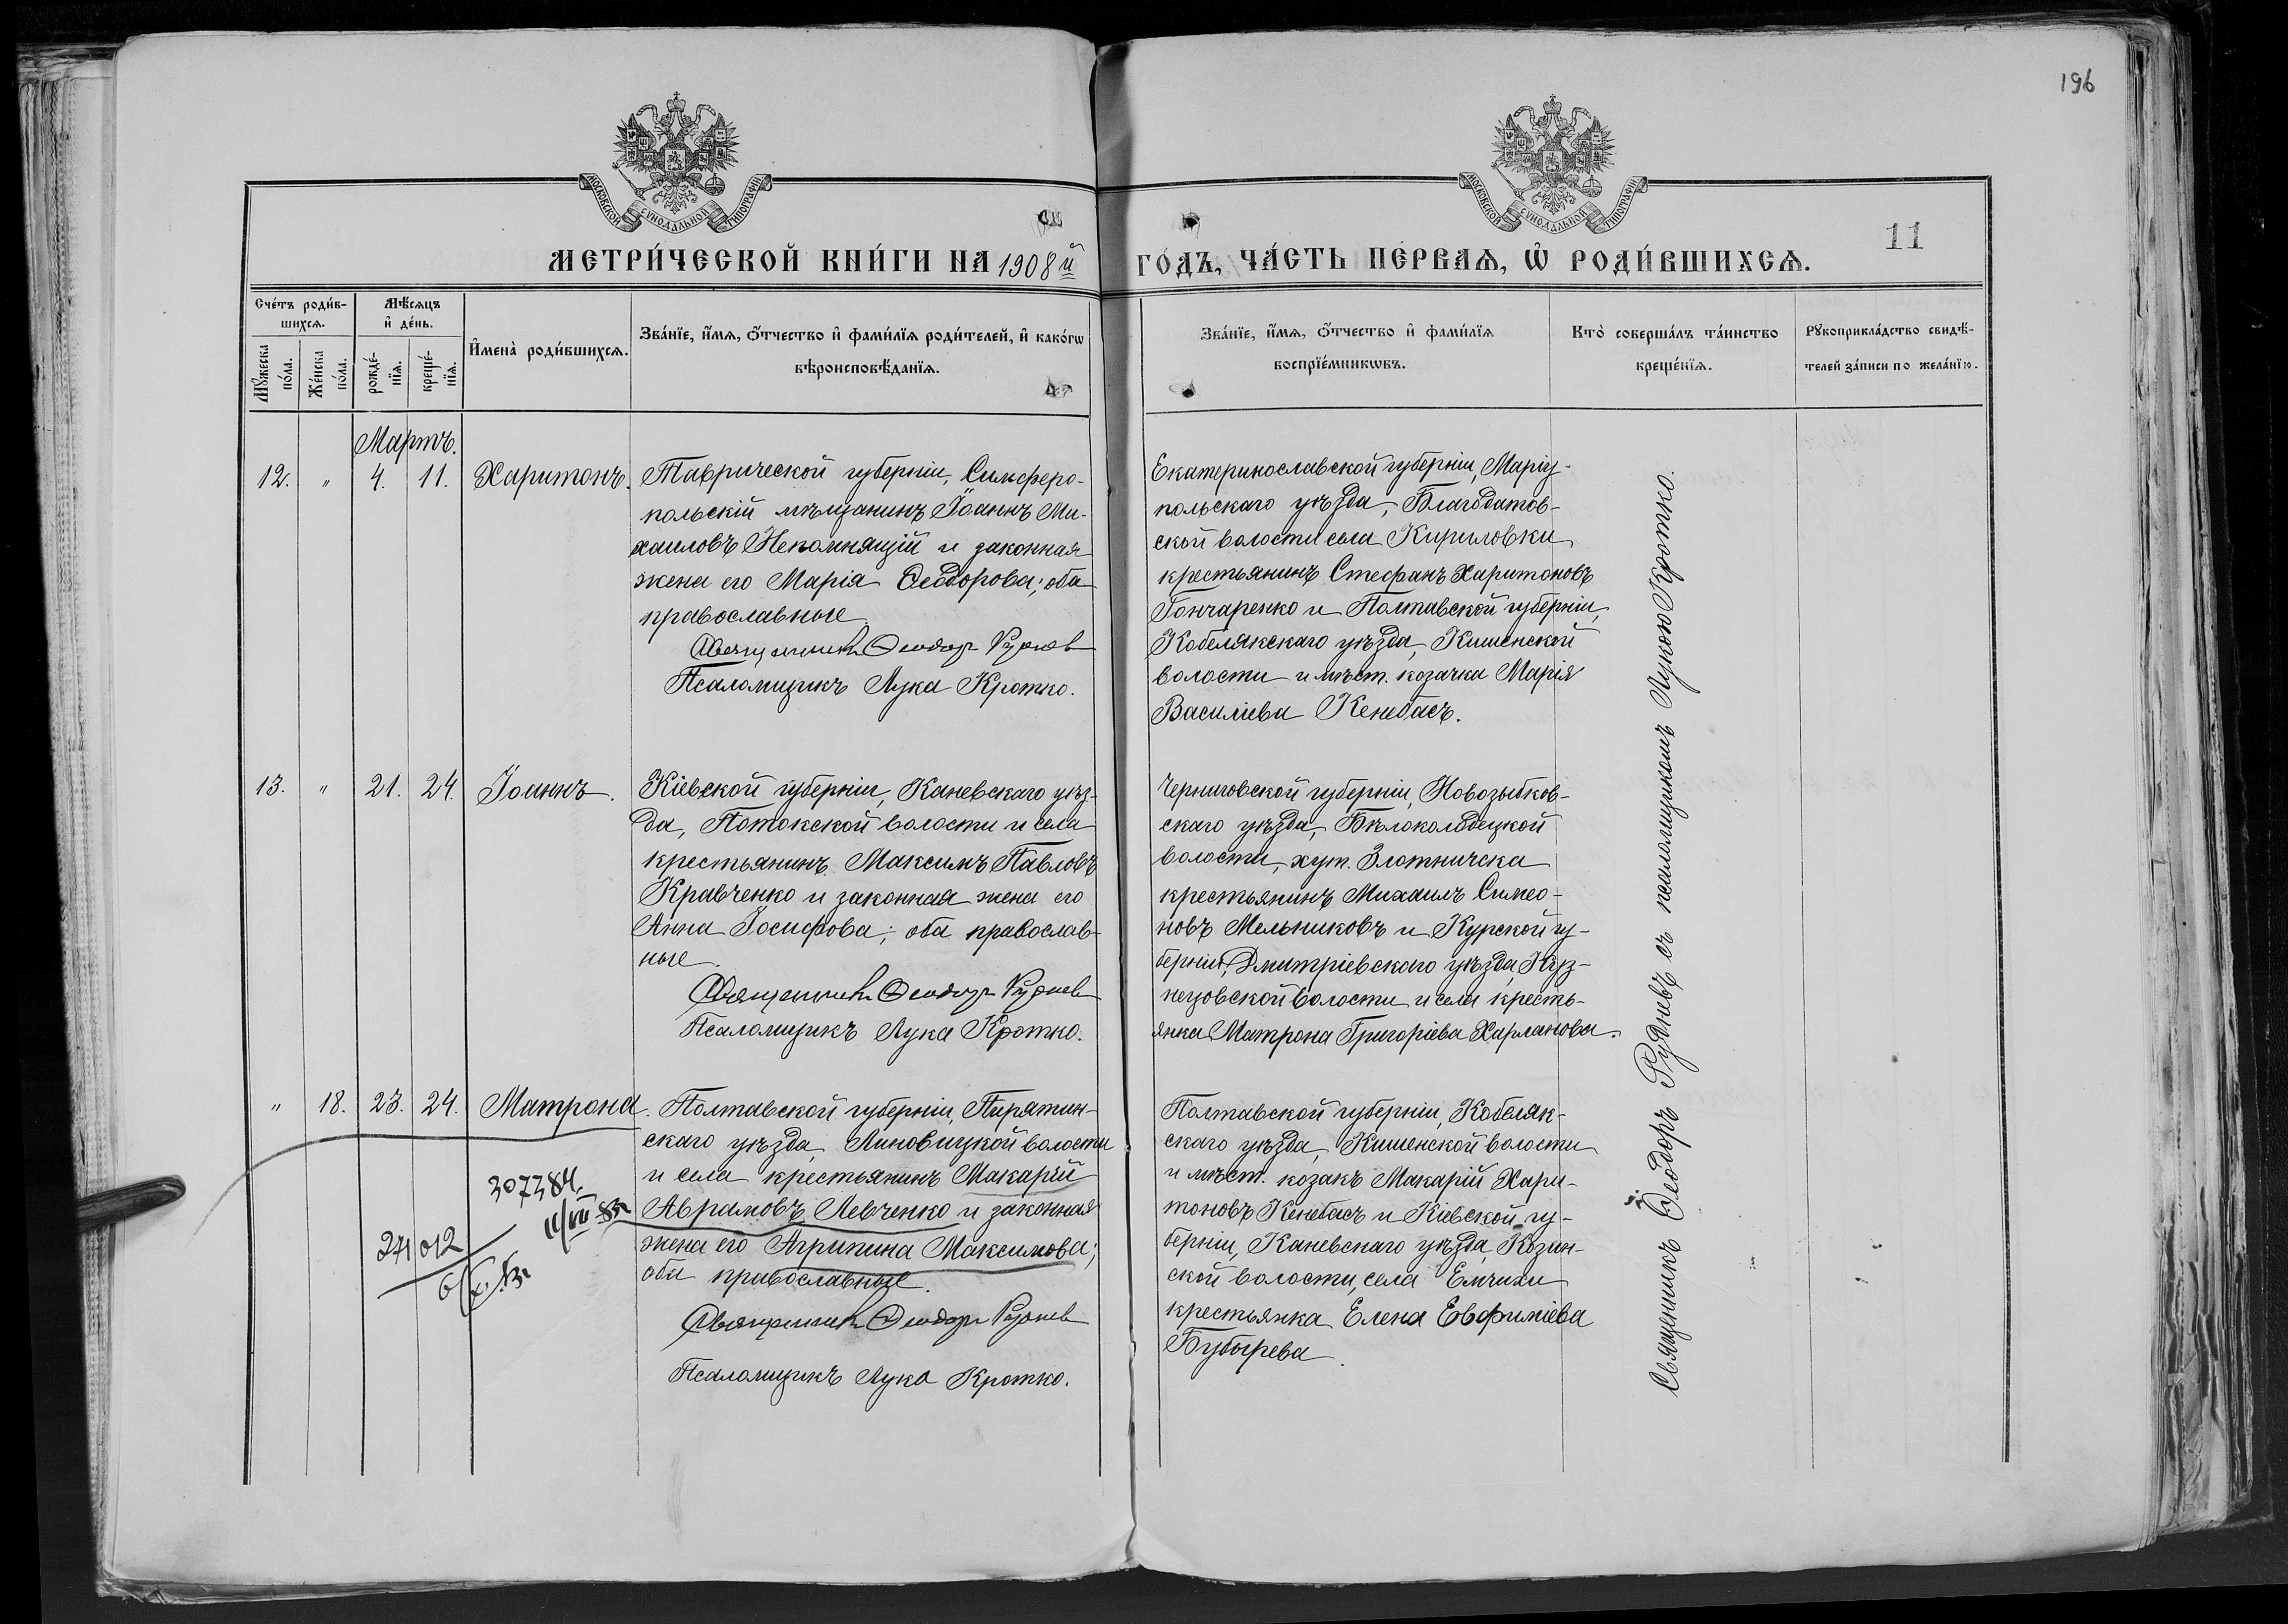 196
МОСКОВСКОЙ СѴНОДАЛЬНОЙ ТИПОГРАФІИ
МОСКОВСКОЙ СѴНОДАЛЬНОЙ ТИПОГРАФІИ
11
МЕТРИ́ЧЕСКОЙ КНИ́ГИ НА 1908й
ГО́ДЪ, ЧА́СТЬ ПЕ́РВАѦ, Ѡ҆ РОДИ́ВШИХСѦ.
Сче́тъ роди́в-
шихсѧ.
Мꙋ́жеска
по́ла.
Же́нска
по́ла.
Мѣ́сѧцъ
и҆ де́нь.
рожде́-
нїѧ.
креще́-
нїѧ.
И҆мена̀ роди́вшихсѧ.
Зва́нїе, и҆́мѧ, ѻ҆́тчество и҆ фами́лїѧ роди́телей, и҆ како́гѡ
вѣроисповѣ́данїѧ.
Зва́нїе, и҆́мѧ, ѻ҆́тчество и҆ фами́лїѧ
воспрїе́мникѡвъ.
Кто̀ соверша́лъ та́инство
креще́нїѧ.
Рꙋкоприкла́дство свидѣ́-
телей за́писи по жела́нїю.
Мартъ.
12. " 4. 11. Харитонъ.
Таврической губерніи, Симферо-
польскій мѣщанинъ Іоаннъ Ми-
хаиловъ Непомнящій и законная
жена его Марія Ѳеодорова; оба
православные
Священникъ Ѳеодоръ Рудневъ
Псаломщикъ Лука Кротко.
Екатеринославской губерніи, Маріу-
польскаго уѣзда, Благодатов-
ской волости села Кириловки
крестьянинъ Стефанъ Харитоновъ
Гончаренко и Полтавской губерніи,
Кобелякскаго уѣзда, Кишенской
волости и мѣст. козачка Марія
Василіева Кенебасъ.
13. " 21. 24. Іоаннъ.
Кіевской губерніи, Каневскаго уѣз-
да, Потокской волости и села
крестьянинъ Максимъ Павловъ
Кравченко и законная жена его
Анна Іосифова; оба православ-
ные.
Священникъ Ѳеодоръ Рудневъ
Псаломщикъ Лука Кротко.
Черниговской губерніи, Новозыбков-
скаго уѣзда, Бѣлоколодецкой
волости, хут. Злотничска
крестьянинъ Михаилъ Симео-
новъ Мельниковъ и Курской гу-
берніи, Дмитріевскаго уѣзда, Куз-
нецовской волости и села кресть-
янка Матрона Григоріева Харланова.
" 18. 23. 24. Матрона.
Полтавской губерніи, Пирятин-
скаго уѣзда, Линовицкой волости
и села крестьянинъ Макарій
Аврамовъ Левченко и законная
жена его Агрипина Максимова;
оба православные.
Священникъ Ѳеодоръ Рудневъ
Псаломщикъ Лука Кротко.
307384.
271012
Полтавской губерніи, Кобеляк-
скаго уѣзда, Кишенской волости
и мѣст. козакъ Макарій Хари-
тоновъ Кенебасъ и Кіевской гу-
берніи, Каневскаго уѣзда, Козин-
ской волости, села Емчихи
крестьянка Елена Евфиміева
Бубырева.
Священникъ Ѳеодоръ Рудневъ съ псаломщикомъ Лукою Кротко.